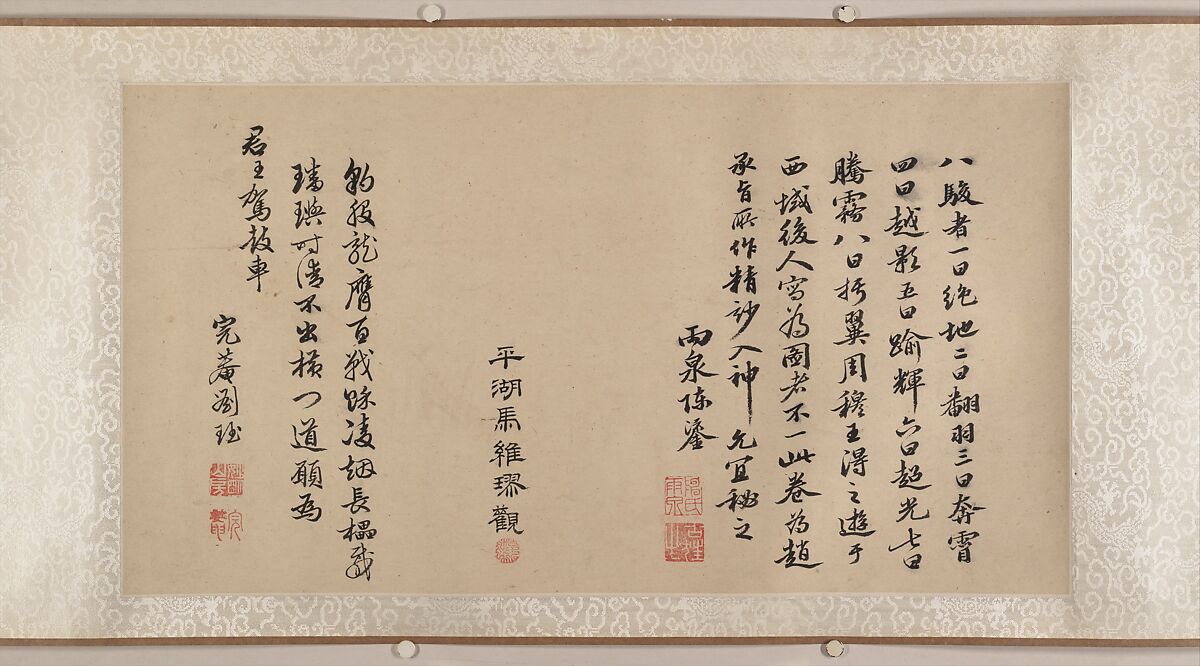 八駿者一曰絶地二曰翻羽三曰奔霄
四曰越影五曰踰輝六曰超光七曰
騰霧八曰扶翼周穆王得之遊于
西域後人寫為圖者不一此卷為趙
承旨所作精妙入神尤宜秘之
雨泉陳鎏
平湖馬維騄觀
豹股龍膺百戰餘凌烟長櫑截
璠璵時清不出橫門道願為
君王駕鼓車
完菴劉珏